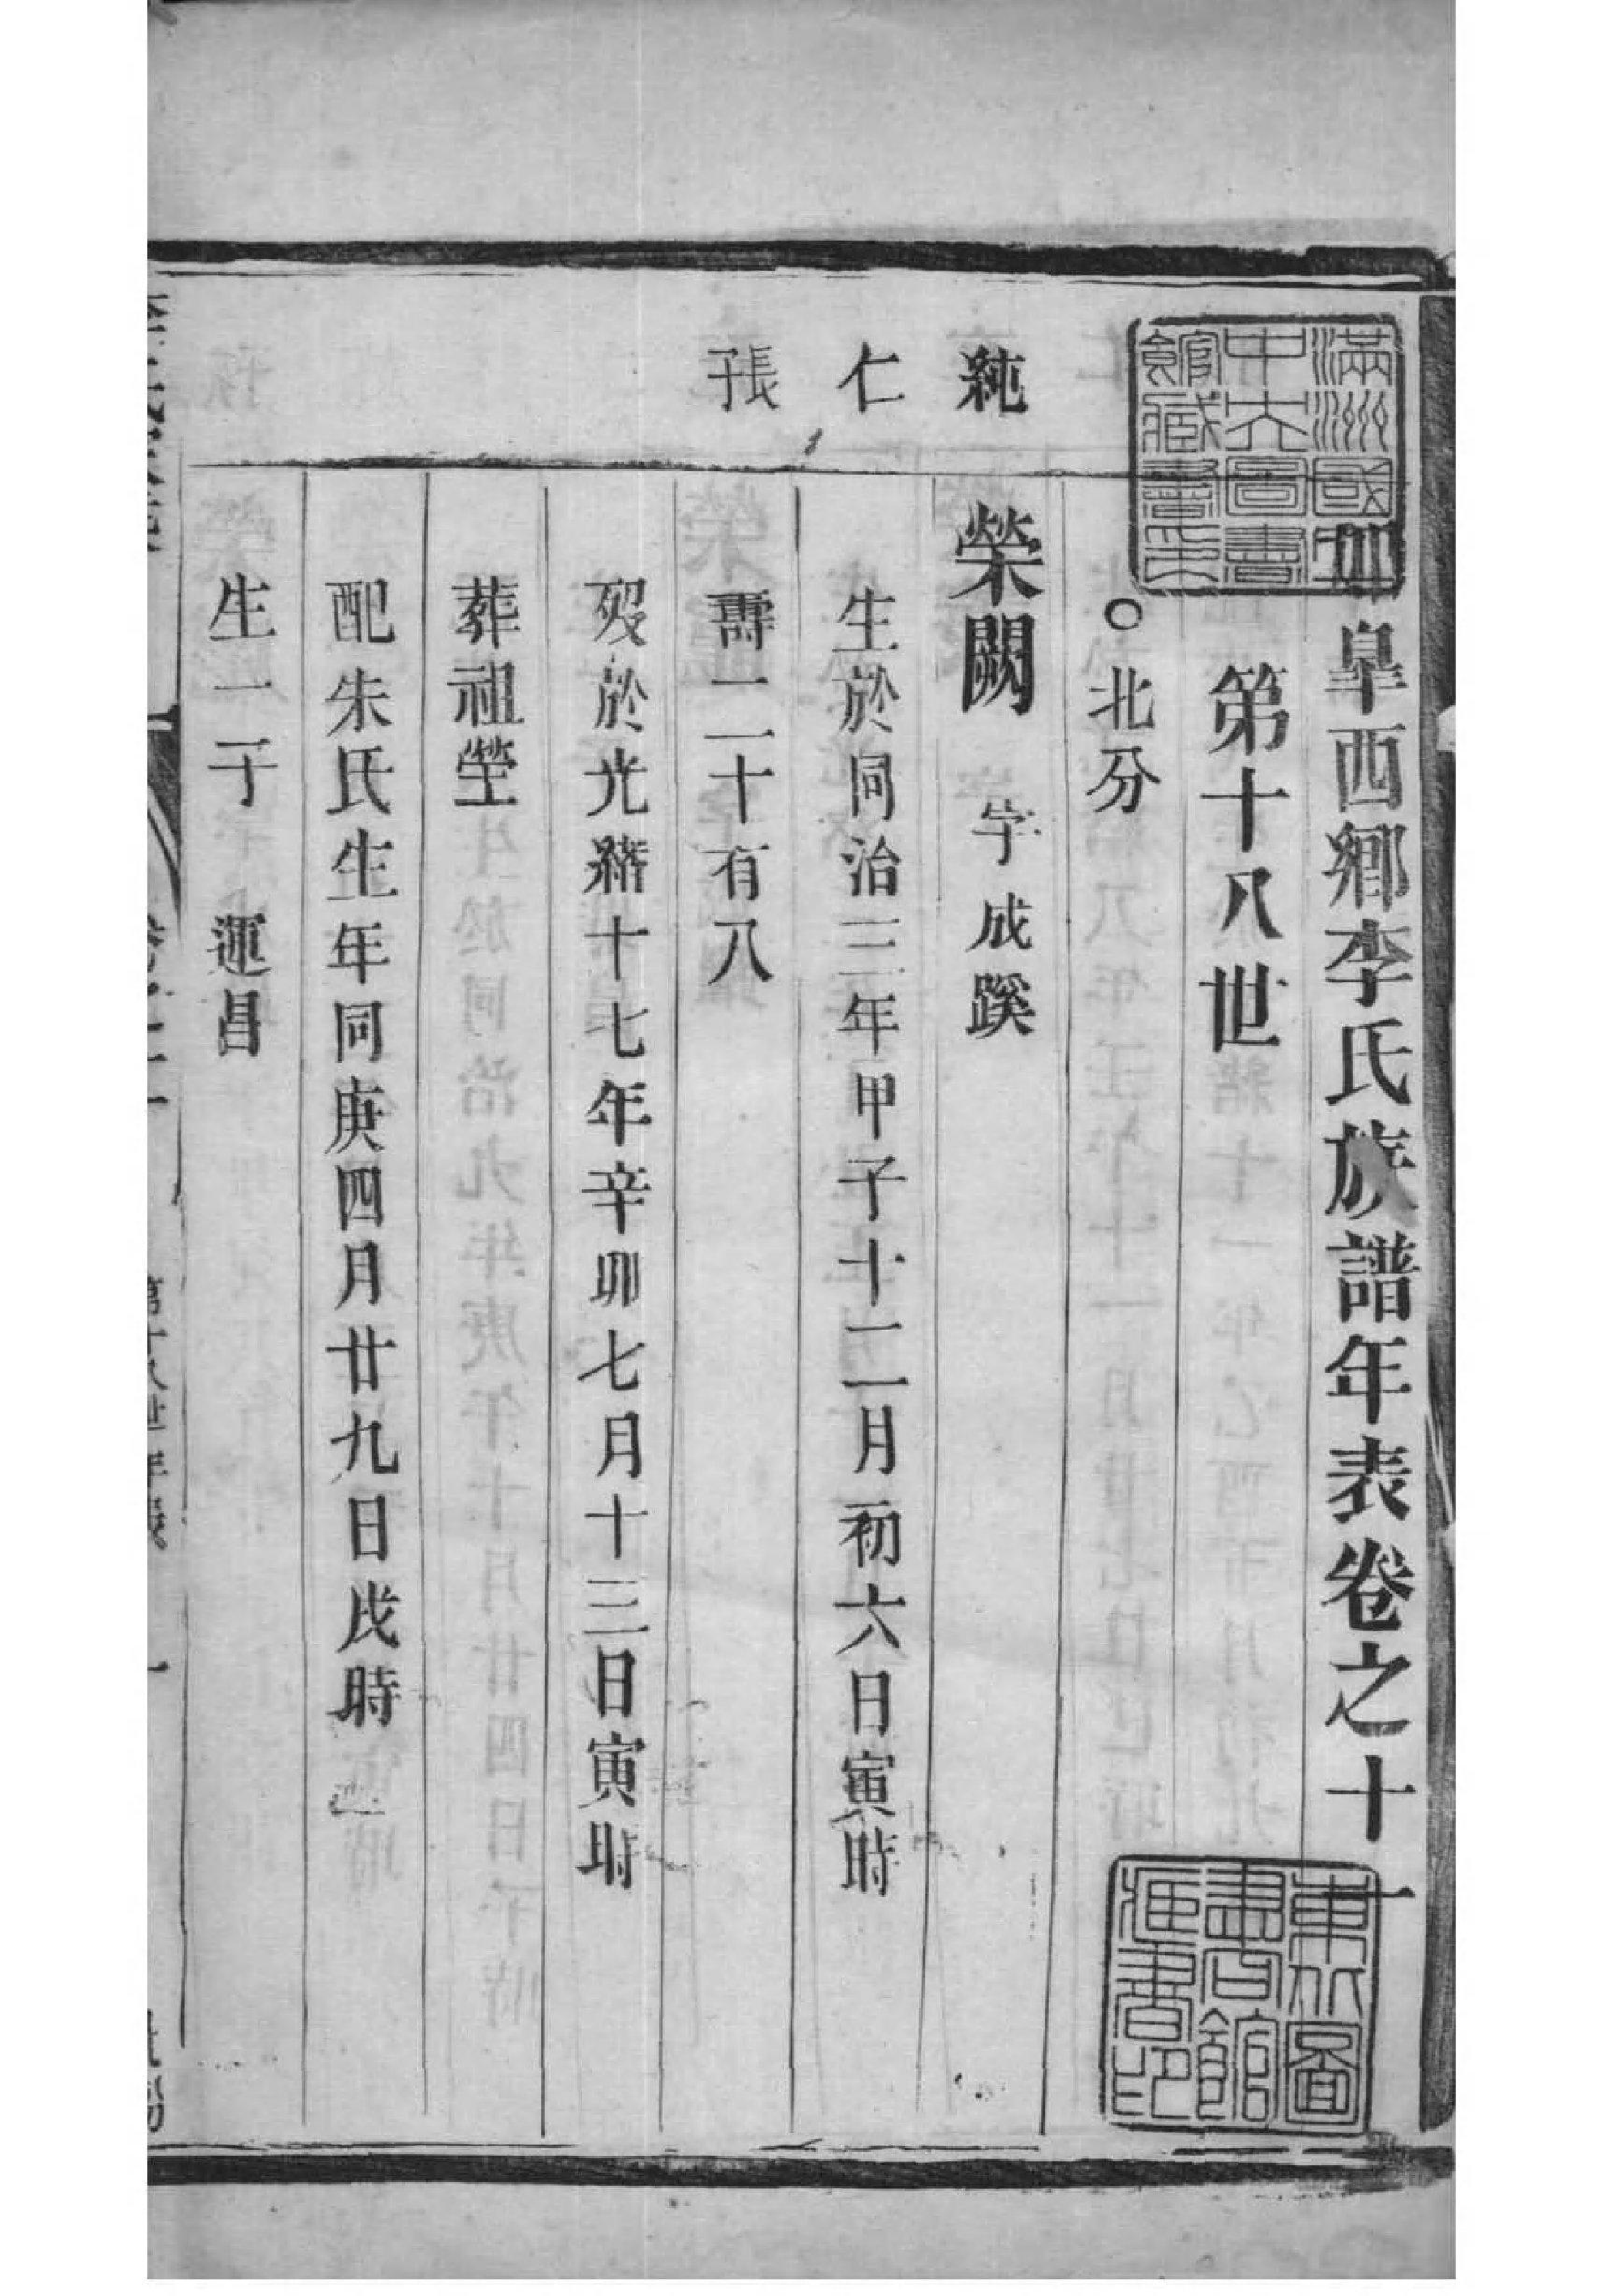 如皐西鄉李氏族譜年表卷之十一
第十八世
○北分
純
榮闕 字成蹊
仁
生於同治三年甲子十二月初六日寅時
張子
壽二十有八
歿於光緒十七年辛卯七月十三日寅時
葬祖塋
配朱氏生年同庚四月廿九日戌時
生一子 運昌
滿洲國
中央圖書
館藏書印
東北圖
書館
藏書印
第十八世年表 一